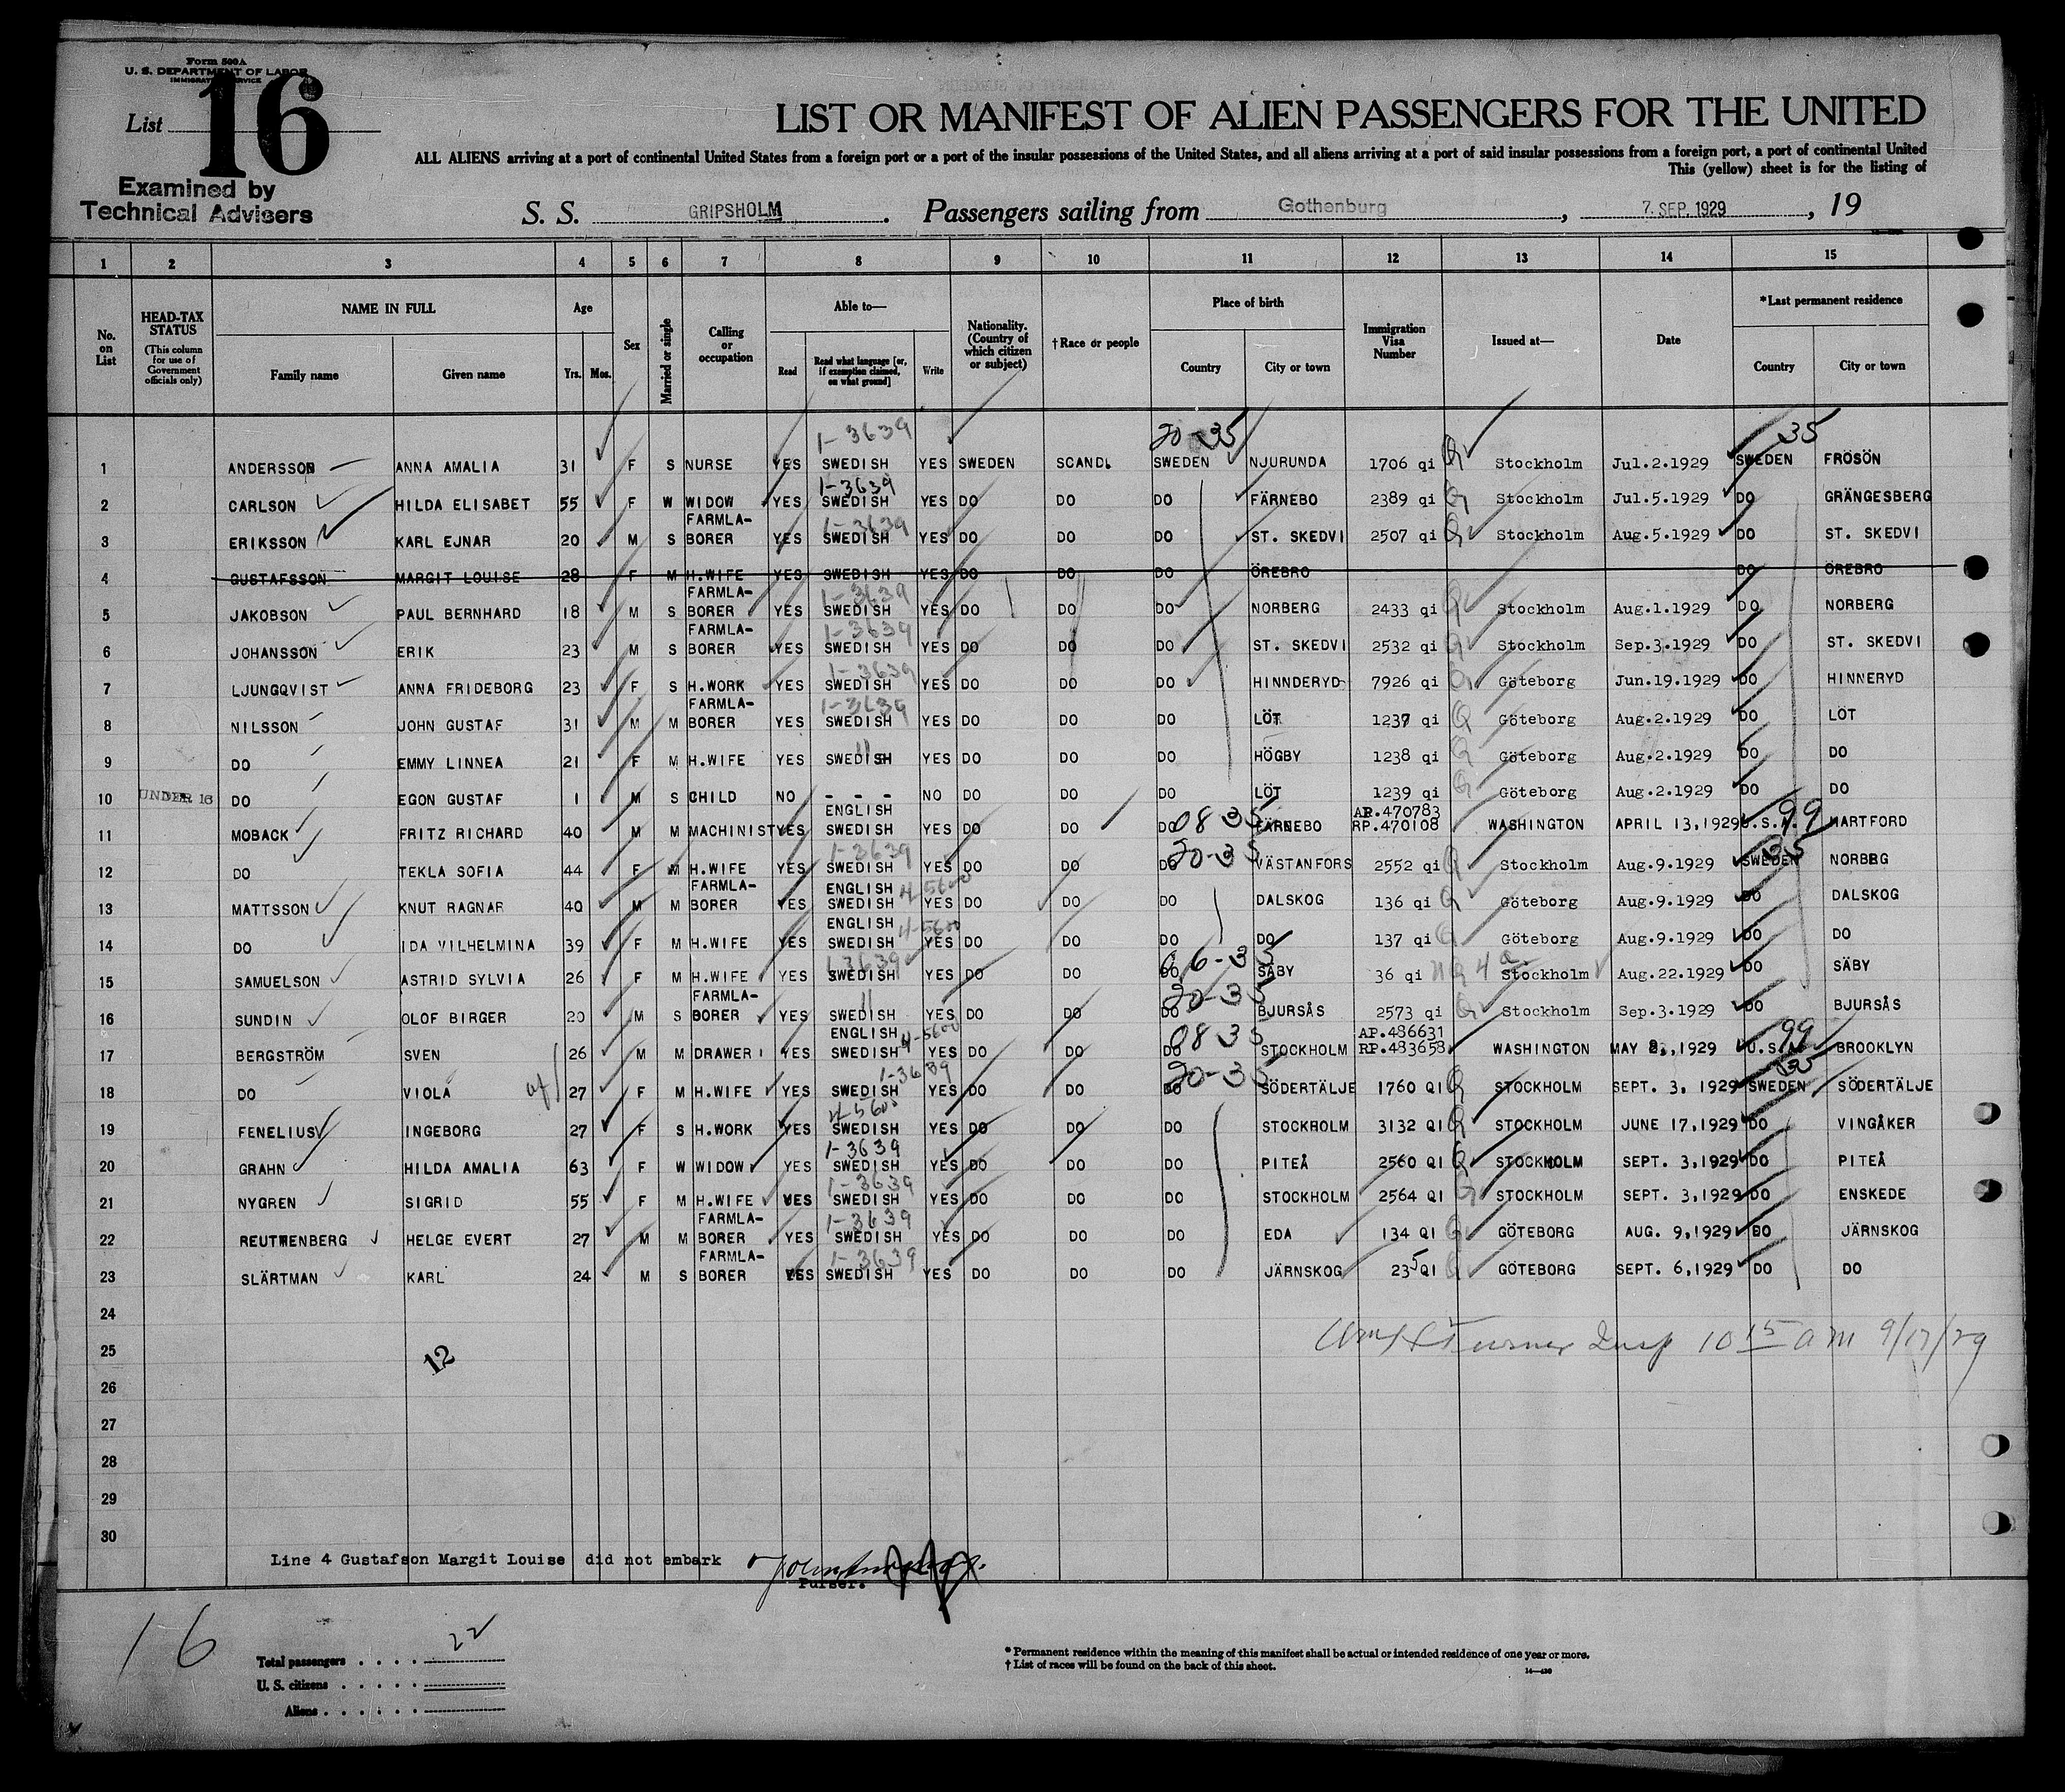 Form 500A
U. S. DEPARTMENT OF LABOR
IMMIGRATION SERVICE
List 16
LIST OR MANIFEST OF ALIEN PASSENGERS FOR THE UNITED
ALL ALIENS arriving at a port of continental United States from a foreign port or a port of the insular possessions of the United States, and all aliens arriving at a port of said insular possessions from a foreign port, a port of continental United
This (yellow) sheet is for the listing of
Examined by
Technical Advisers
S. S. GRIPSHOLM. Passengers sailing from Gothenburg, 7. SEP. 1929, 19
1 2 3 4 5 6 7 8 9 10 11 12 13 14 15
No. on List HEAD-TAX STATUS (This column for use of Government officials only) NAME IN FULL Family name Given name Age Yrs. Mos. Sex Married or single Calling or occupation Able to— Read Read what language [or, if exemption claimed, on what ground] Write Nationality. (Country of which citizen or subject) †Race or people Place of birth Country City or town Immigration Visa Number Issued at— Date *Last permanent residence Country City or town
1-3639 20-35 35
1 ANDERSSON ANNA AMALIA 31 F S NURSE YES SWEDISH YES SWEDEN SCAND. SWEDEN NJURUNDA 1706 qi Q Stockholm Jul.2.1929 SWEDEN FRÖSÖN
1-3639
2 CARLSON HILDA ELISABET 55 F W WIDOW YES SWEDISH YES DO DO DO FÄRNEBO 2389 qi Q Stockholm Jul.5.1929 DO GRÄNGESBERG
FARMLA- 1-3639
3 ERIKSSON KARL EJNAR 20 M S BORER YES SWEDISH YES DO DO DO ST. SKEDVI 2507 qi Q Stockholm Aug.5.1929 DO ST. SKEDVI
4 GUSTAFSSON MARGIT LOUISE 28 F M H.WIFE YES SWEDISH YES DO DO DO ÖREBRO DO ÖREBRO
FARMLA- 1-3639
5 JAKOBSON PAUL BERNHARD 18 M S BORER YES SWEDISH YES DO DO DO NORBERG 2433 qi Q Stockholm Aug.1.1929 DO NORBERG
FARMLA- 1-3639
6 JOHANSSON ERIK 23 M S BORER YES SWEDISH YES DO DO DO ST. SKEDVI 2532 qi Q Stockholm Sep.3.1929 DO ST. SKEDVI
1-3639
7 LJUNGQVIST ANNA FRIDEBORG 23 F S H.WORK YES SWEDISH YES DO DO DO HINNDERYD 7926 qi Q Göteborg Jun.19.1929 DO HINNERYD
FARMLA- 1-3639
8 NILSSON JOHN GUSTAF 31 M M BORER YES SWEDISH YES DO DO DO LÖT 1237 qi Q Göteborg Aug.2.1929 DO LÖT
9 DO EMMY LINNEA 21 F M H.WIFE YES SWEDISH YES DO DO DO HÖGBY 1238 qi Q Göteborg Aug.2.1929 DO DO
10 UNDER 16 DO EGON GUSTAF 1 M S CHILD NO - - - NO DO DO DO LÖT 1239 qi Q Göteborg Aug.2.1929 DO DO
ENGLISH 08 35 AP.470783 99
11 MOBACK FRITZ RICHARD 40 M M MACHINIST YES SWEDISH YES DO DO DO FÄRNEBO RP.470108 WASHINGTON APRIL 13,1929 U.S.A. HARTFORD
1-3639 20-35 35
12 DO TEKLA SOFIA 44 F M H.WIFE YES SWEDISH YES DO DO DO VÄSTANFORS 2552 qi Q Stockholm Aug.9.1929 SWEDEN NORBRG
FARMLA- ENGLISH 4-5600
13 MATTSSON KNUT RAGNAR 40 M M BORER YES SWEDISH YES DO DO DO DALSKOG 136 qi Q Göteborg Aug.9.1929 DO DALSKOG
ENGLISH 4-5600
14 DO IDA VILHELMINA 39 F M H.WIFE YES SWEDISH YES DO DO DO DO 137 qi Q Göteborg Aug.9.1929 DO DO
1-3639 06-35
15 SAMUELSON ASTRID SYLVIA 26 F M H.WIFE YES SWEDISH YES DO DO DO SÄBY 36 qi NQ 4 a. Stockholm Aug.22.1929 DO SÄBY
FARMLA- 20-35
16 SUNDIN OLOF BIRGER 20 M S BORER YES SWEDISH YES DO DO DO BJURSÅS 2573 qi Q Stockholm Sep.3.1929 DO BJURSÅS
ENGLISH 4-5600 08 35 AP.486631 99
17 BERGSTRÖM SVEN 26 M M DRAWER YES SWEDISH YES DO DO DO STOCKHOLM RP.483658 WASHINGTON MAY 8,,1929 U.S.A. BROOKLYN
1-3639 20-35 35
18 DO VIOLA 27 F M H.WIFE YES SWEDISH YES DO DO DO SÖDERTÄLJE 1760 QI Q STOCKHOLM SEPT. 3, 1929 SWEDEN SÖDERTÄLJE
4-5600
19 FENELIUS INGEBORG 27 F S H.WORK YES SWEDISH YES DO DO DO STOCKHOLM 3132 QI Q STOCKHOLM JUNE 17,1929 DO VINGÅKER
1-3639
20 GRAHN HILDA AMALIA 63 F W WIDOW YES SWEDISH YES DO DO DO PITEÅ 2560 QI Q STOCKHOLM SEPT. 3,1929 DO PITEÅ
1-3639
21 NYGREN SIGRID 55 F M H.WIFE YES SWEDISH YES DO DO DO STOCKHOLM 2564 QI Q STOCKHOLM SEPT. 3,1929 DO ENSKEDE
FARMLA- 1-3639
22 REUTHENBERG HELGE EVERT 27 M M BORER YES SWEDISH YES DO DO DO EDA 134 QI Q GÖTEBORG AUG. 9,1929 DO JÄRNSKOG
FARMLA- 1-3639
23 SLÄRTMAN KARL 24 M S BORER YES SWEDISH YES DO DO DO JÄRNSKOG 235 QI Q GÖTEBORG SEPT. 6,1929 DO DO
24
25 12 Turner Insp 10 15 a m 9/17/29
26
27
28
29
30
Line 4 Gustafson Margit Louise did not embark
Purser.
16
Total passengers . . . . 22
U. S. citizens . . . . .
Aliens . . . . . .
* Permanent residence within the meaning of this manifest shall be actual or intended residence of one year or more.
† List of races will be found on the back of this sheet.
14—430